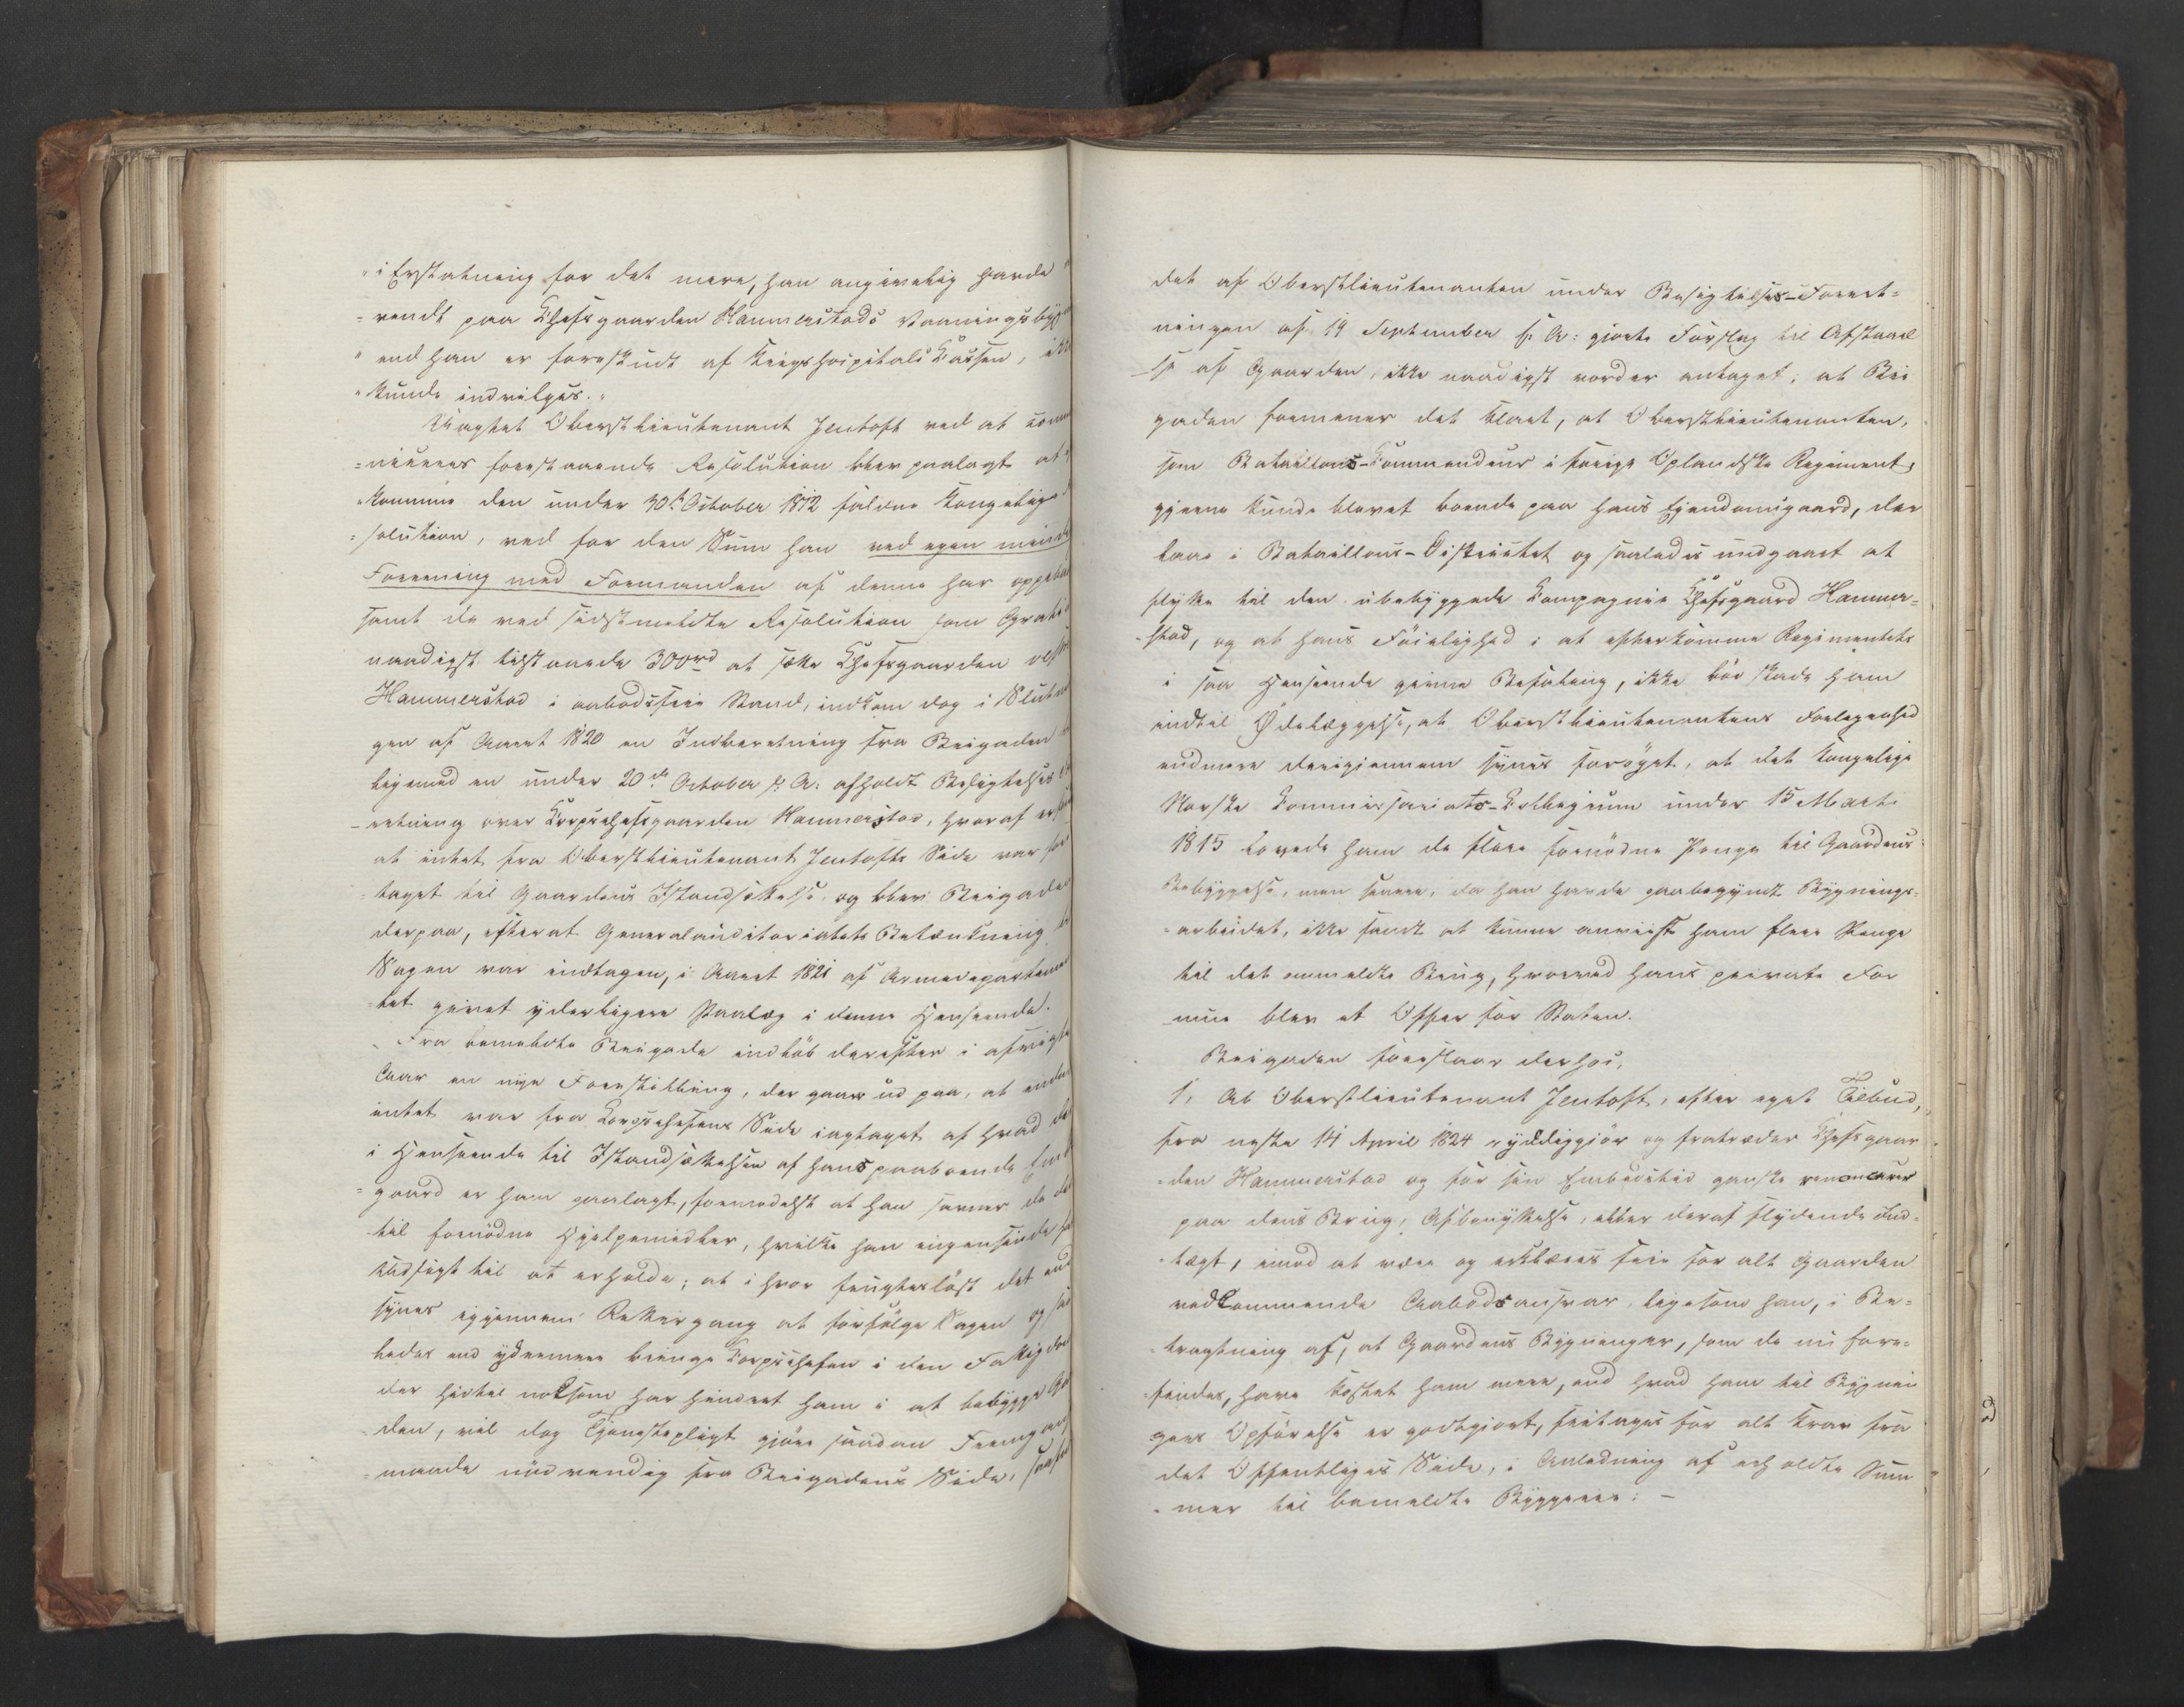 "i Erstatning for det mere, han angivelig havde
"vendt paa Chefsgaarden Hammerstads Vaaningsbyg
"end han er forskudt af Krigshospitals Cassen, ikke
"kunde indvilges."
Uagtet Oberstlieutenant Jentoft ved at
=nieres forestaaende Resolution blev paalagt at
=komme den under 30te October 1812 faldne Kongelige
=solution, ved for den Sum han ved egen mind
Forening med Formanden af denne har oppebaa
samt de ved sidstmeldte Resolution som Grati
naadigst tilstaaede 300rd at sætte Chefsgaarden
Hammerstad i aabodsfrie Stand, indkom dog i Slutn
gen af Aaret 1820 en Indberetning fra Brigaden
ligemed en under 20de October s: A: afholdt Besigtelses
=retning over Corpschefsgaarden Hammerstad, hvoraf er
at intet fra Oberstlieutenant Jentofts Side var for
=taget til Gaardens Istandsættelse, og blev Brigaden
derpaa, efterat Generalauditoriatets Betænkning
Sagen var indtagen, i Aaret 1821 af Armedepartemen
=tet givet yderligere Paalæg i denne Henseende.
Fra bemeldte Brigade indløb derefter i afvigte
Aar en nye Forestilling, der gaaer ud paa, at endn
intet var fra Corpschefens Side iagttaget af hvad
i Henseende til Istandsættelsen af hans paaboende Em
=gaard er ham paalagt, formedelst at han savner de
til fornødne Hjelpemidler, hvilke han ingensinde
Udsigt til at erholde; at i hvor frugtesløst det end
synes igjennem Rettergang at forfølge Sagen og
ledes end ydermere bringe Corpschefen i den Fattigdom
der hidtil noksom har hindret ham i at bebygge
=den, vil dog Tjenestepligt gjøre saadan Fremgang
=maade nødvendig fra Brigadens Side,
det af Oberstlieutenanten under Besigtelses-Forret=
ningen af 19 September f: A: gjorte Forslag til Afstaael
=se af Gaarden, ikke naadigst vorder antaget; at Bri
gaden formener det klart, at Oberstlieutenanten,
som Bataillons-Commandeur i forrige Oplandske Regiment,
gjerne kunde blevet boende paa hans Ejendomsgaard, der
laae i Bataillons-Districtet og saaledes undgaaet at
flytte til den ubebyggede Compagnie Chefsgaard Hammer=
=stad, og at hans Føielighed i at efterkomme Regimentets
i saa Henseende givne Befaling, ikke bør skade ham
indtil Ødelæggelse, at Oberstlieutenantens Forlegenhed
endmere derigjennem synes forøget, at det Kongelige
Norske Commissariats-Collegium under 15 Marts
1815 lovede ham de flere fornødne Penge til Gaardens
Bebyggelse, men senere, da han havde paabegyndt Bygnings=
=arbeidet, ikke fandt at kunne anviise ham flere Penge
til det ommeldte Brug, hvorved hans private For
=mue blev et Offer for Staten.
Brigaden foreslaar derhos,
1, At Oberstlieutenant Jentoft, efter eget Tilbud,
fra næste 14 April 1824 ryddiggjør og fratræder Chefsgaar
=den Hammerstad og for sin Embedstid ganske renoncerer
paa dens Brug, Afbenyttelse, eller deraf flydende Ind=
=tægt, imod at være og erklæres frie for alt Gaarden
vedkommende Aabodsansvar, ligesom han, i Be=
=tragtning af, at Gaardens Bygninger, som de nu fore=
=findes, have kostet ham mere, end hvad ham til Bygnin
gens Opførelse er godtgjort, fritages for alt Krav fra
det Offentliges Side, i Anledning af erholdte Sum
=mer til bemeldte Byggerie: –